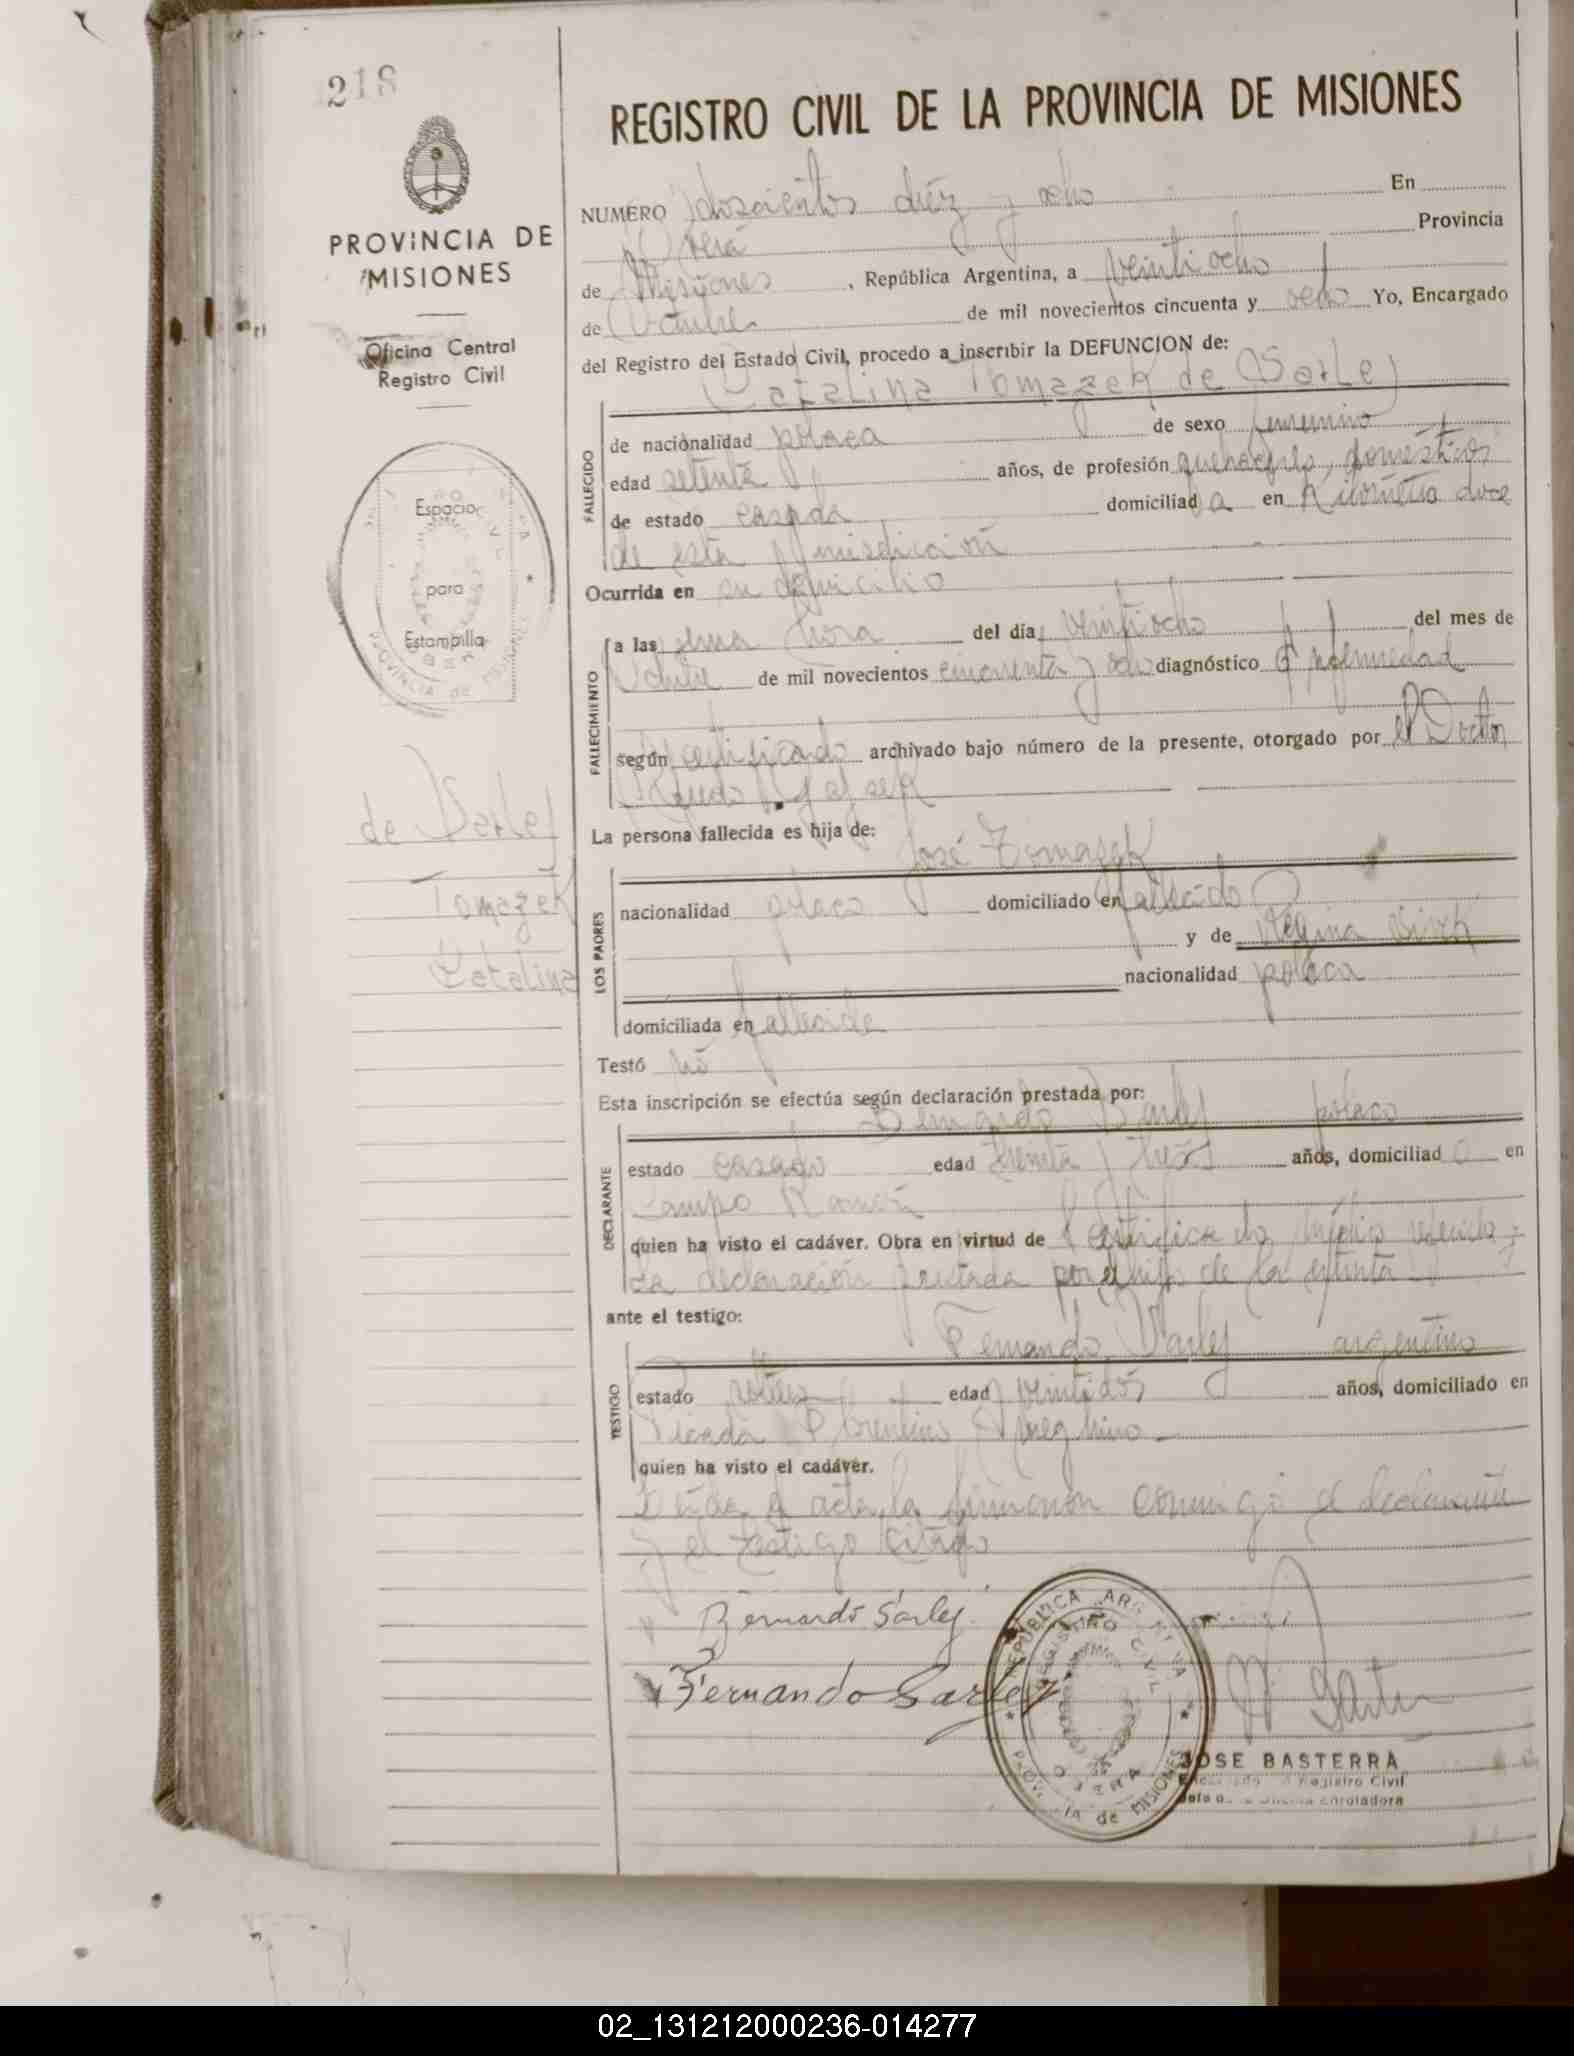 218
PROVINCIA DE
MISIONES
Oficina Central
Registro Civil
Espacio
para
Estampilla
de Sarlej
Tomazek
Catalina
REGISTRO CIVIL DE LA PROVINCIA DE MISIONES
NUMERO doscientos diéz y ocho En
Oberá Provincia
de Misiones, República Argentina, a veintiocho
de Octubre de mil novecientos cincuenta y ocho Yo, Encargado
del Registro del Estado Civil, procedo a inscribir la DEFUNCION de:
Catalina Tomazek de Sarlej
FALLECIDO
de nacionalidad polaca de sexo femenino
edad setenta años, de profesión quehaceres domésticos
de estado casada domiciliad a en Kilómetro doce
de esta jurisdicción
Ocurrida en su domicilio
FALLECIMIENTO
a las una hora del día veintiocho del mes de
Octubre de mil novecientos cincuenta y ocho diagnóstico Enfermedad
según certificado archivado bajo número de la presente, otorgado por el Doctor
La persona fallecida es hija de:
LOS PADRES
José Tomazek
nacionalidad polaco domiciliado en fallecido
y de Regina
nacionalidad polaca
domiciliada en fallecida
Testó no
Esta inscripción se efectúa según declaración prestada por:
DECLARANTE
Bernardo Sarlej polaco
estado casado edad treinta y tres años, domiciliad o en
Campo Ramón
quien ha visto el cadáver. Obra en virtud de Certificado médico referido y
la declaración prestada por el hijo de la extinta
ante el testigo:
TESTIGO
Fernando Sarlej argentino
estado soltero edad veintidós años, domiciliado en
Picada Florentino Ameghino
quien ha visto el cadáver.
Leída el acta, la firmaron conmigo el declarante
y el testigo citado
Bernardo Sarlej
Fernando Sarlej
REPUBLICA ARGENTINA
REGISTRO CIVIL
OBERA
PROVINCIA de MISIONES
JOSE BASTERRA
Encargado del Registro Civil
Jefe de la Oficina Enroladora
02_131212000236-014277